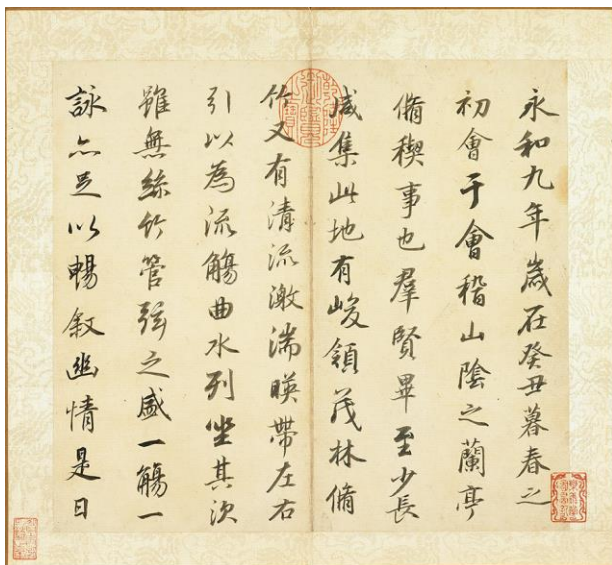 永和九年歲在癸丑暮春之
初會于會稽山陰之蘭亭
脩稧事也羣賢畢至少長
咸集此地有峻領茂林脩
竹又有清流激湍暎帶左右
引以為流觴曲水列坐其次
雖無絲竹管弦之盛一觴一
詠亦足以暢敘幽情是日